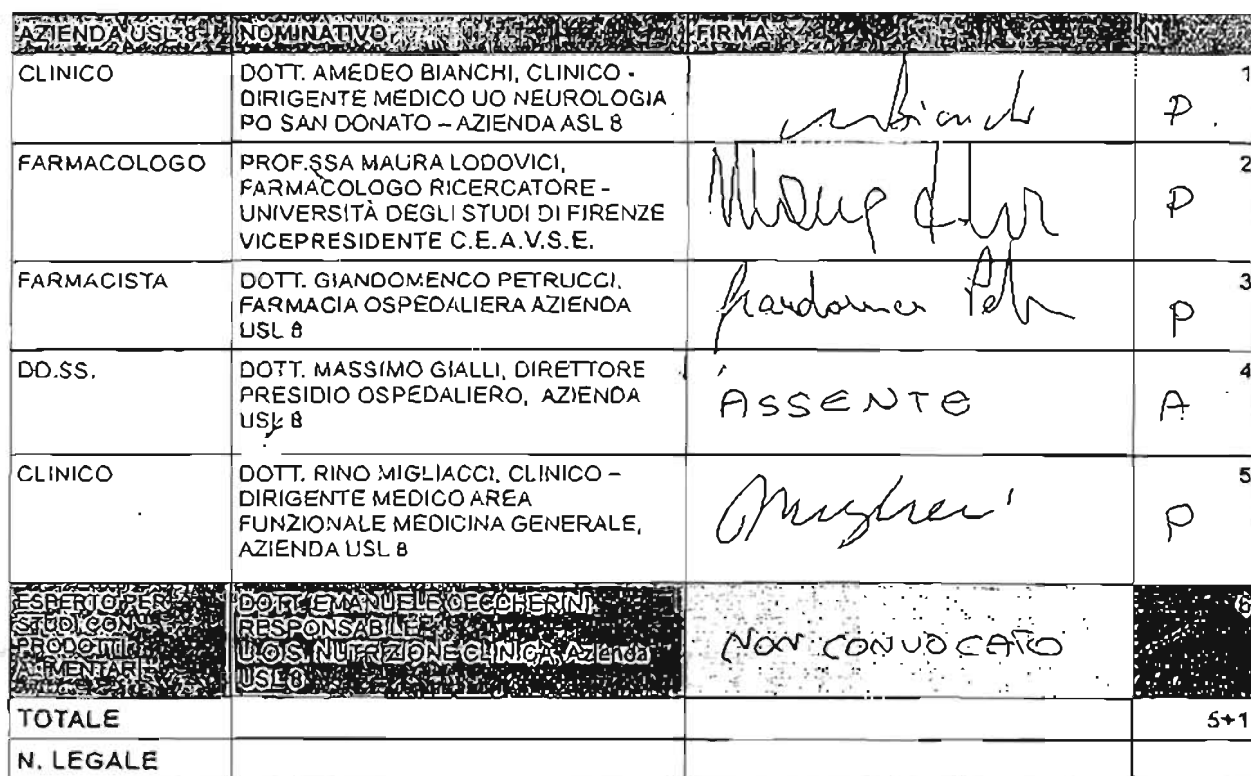 AZIENDA USL 8 NOMINATIVO FIRMA N.
CLINICO
DOTT. AMEDEO BIANCHI, CLINICO -
DIRIGENTE MEDICO UO NEUROLOGIA
PO SAN DONATO – AZIENDA ASL 8
Bianchi
P.
1
FARMACOLOGO
PROF.SSA MAURA LODOVICI,
FARMACOLOGO RICERCATORE -
UNIVERSITÀ DEGLI STUDI DI FIRENZE
VICEPRESIDENTE C.E.A.V.S.E.
P
2
FARMACISTA
DOTT. GIANDOMENCO PETRUCCI,
FARMACIA OSPEDALIERA AZIENDA
USL 8
P
3
DD.SS.
DOTT. MASSIMO GIALLI, DIRETTORE
PRESIDIO OSPEDALIERO, AZIENDA
USL 8
ASSENTE
A
4
CLINICO
DOTT. RINO MIGLIACCI, CLINICO –
DIRIGENTE MEDICO AREA
FUNZIONALE MEDICINA GENERALE,
AZIENDA USL 8
P
5
ESPERTO PER
STUDI CON
PRODOTTI
ALIMENTARI
DOTT. EMANUELE CECCHERINI
RESPONSABILE
U.O.S. NUTRIZIONE CLINICA, Azienda
USL 8
NON CONVOCATO
6
TOTALE
5+1
N. LEGALE